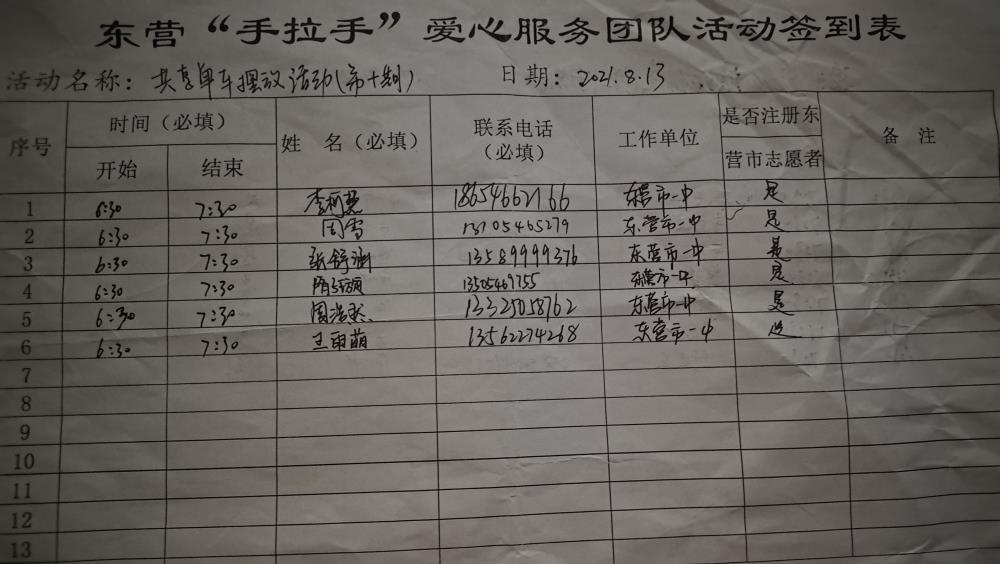 东营“手拉手”爱心服务团队活动签到表
活动名称：共享单车摆放活动(第十期) 日期：2021.8.13
序号 时间（必填） 姓 名（必填） 联系电话（必填） 工作单位 是否注册东营市志愿者 备 注
开始 结束
1 6:30 7:30 李柯慧 18654662166 东营市一中 是
2 6:30 7:30 周雪 13705465279 东营市一中 是
3 6:30 7:30 张舒涵 13589999376 东营市一中 是
4 6:30 7:30 13505469755 东营市一中 是
5 6:30 7:30 周浩然 13325058762 东营市一中 是
6 6:30 7:30 王雨萌 13562274268 东营市一中 是
7
8
9
10
11
12
13